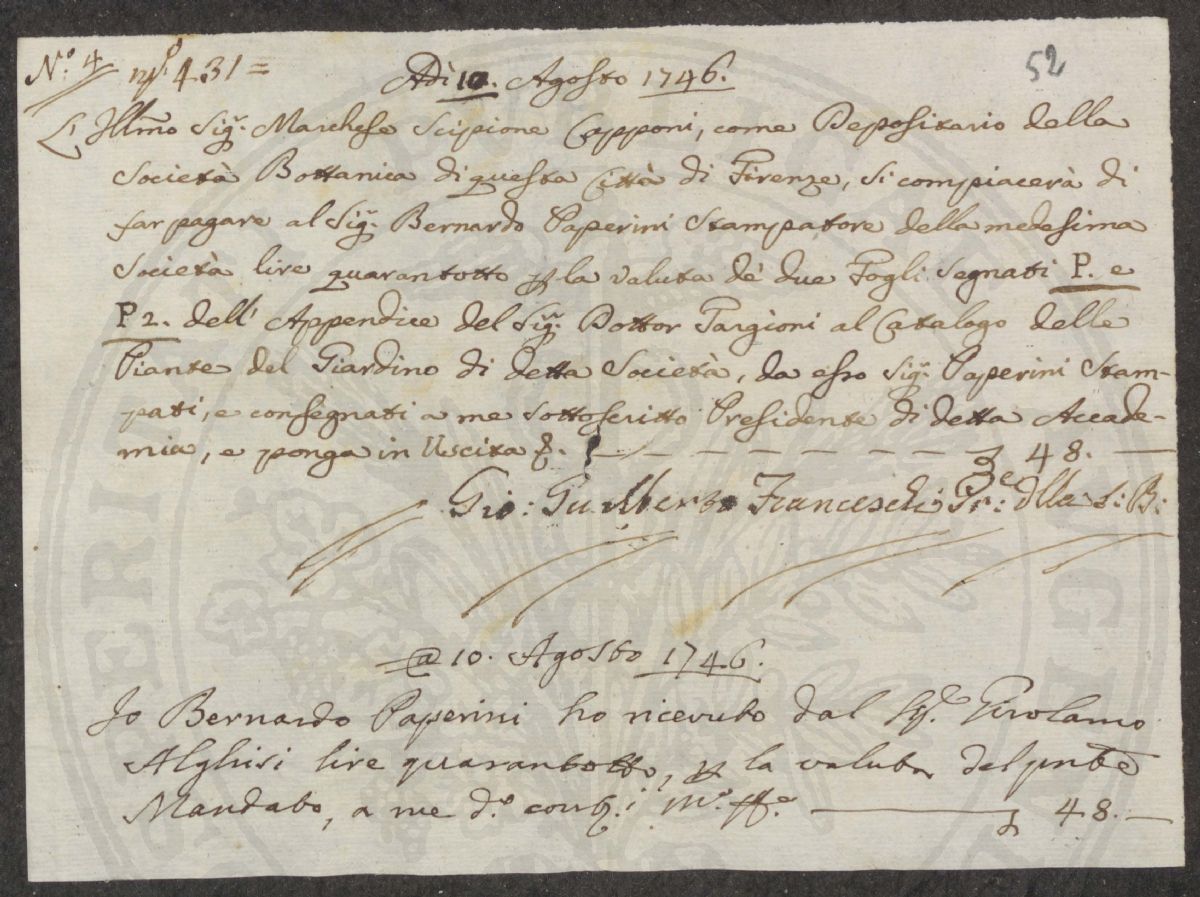 N.º 4 431=
Adì 10. Agosto 1746. 52
L'Illmo Sig.r Marchese Scipione Capponi, come Depositario della
Società Bottanica di questa Città di Firenze, si compiacerà di
far pagare al Sig.r Bernardo Paperini Stampatore della medesima
Società lire quarantotto p la valuta de' due Fogli segnati P. e
P2. dell' Appendice del Sig.r Dottor Targioni al Catalogo delle
Piante del Giardino di detta Società, da esso Sig.r Paperini Stam-
pati, e consegnati a me sottoscritto Presidente di detta Accade-
mia, e ponga in Uscita 48.
Gio: Gualberto Franceschi Pr.e dlla S: B:
a 10. Agosto 1746.
Io Bernardo Paperini ho ricevuto dal Sig.r Girolamo
Alghisi lire quarantotto, p la valuta del pnte
Mandato, a me d.o 48.